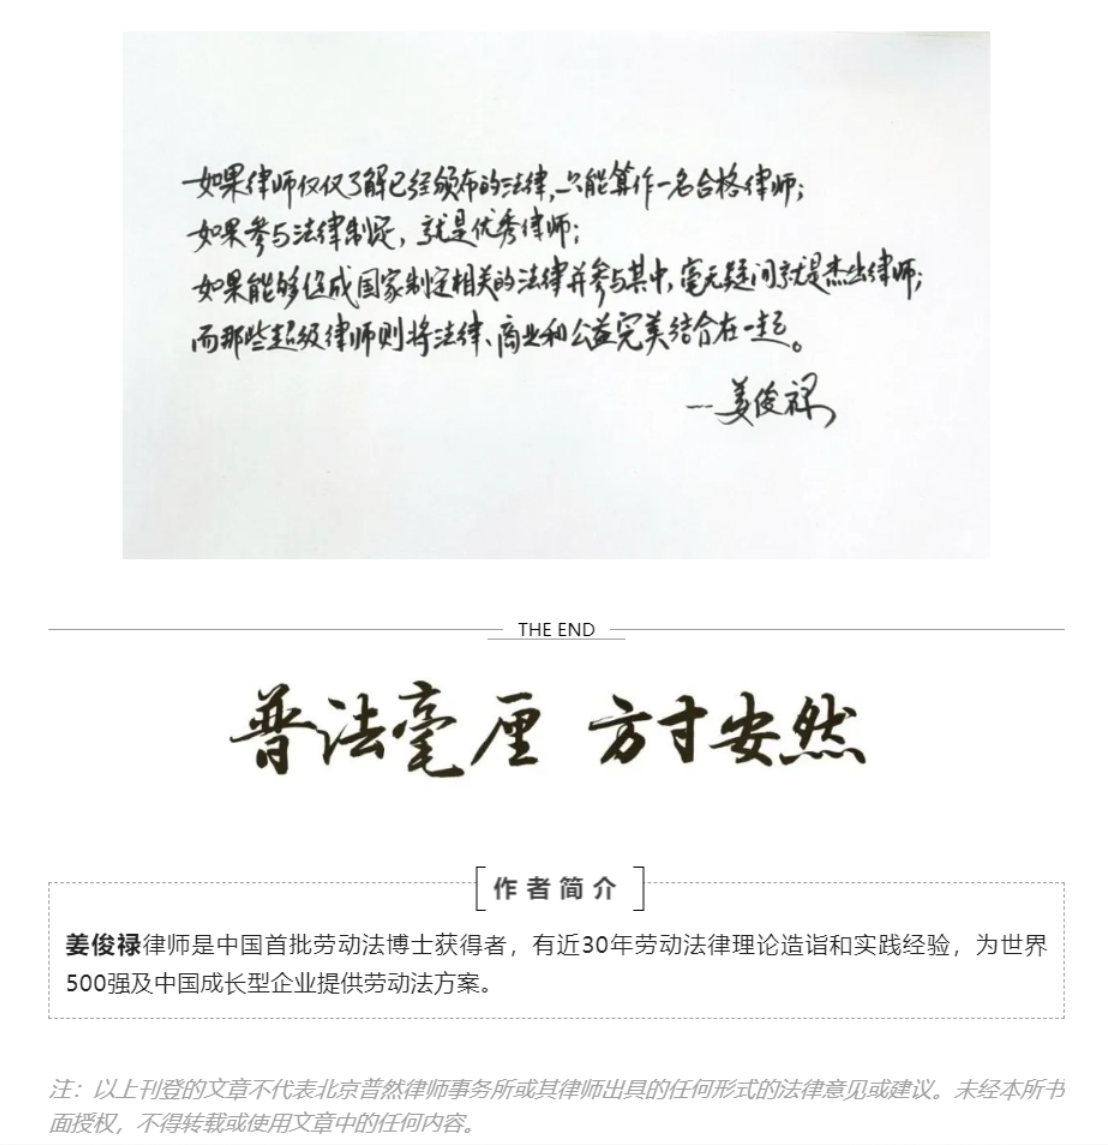 如果律师仅仅了解已经颁布的法律,只能算作一名合格律师;
如果参与法律制定,就是优秀律师;
如果能够促成国家制定相关的法律并参与其中,毫无疑问就是杰出律师;
而那些超级律师则将法律、商业和公益完美结合在一起。
—姜俊禄
THE END
普法毫厘 方寸安然
作者简介
姜俊禄律师是中国首批劳动法博士获得者，有近30年劳动法律理论造诣和实践经验，为世界
500强及中国成长型企业提供劳动法方案。
注：以上刊登的文章不代表北京普然律师事务所或其律师出具的任何形式的法律意见或建议。未经本所书
面授权，不得转载或使用文章中的任何内容。